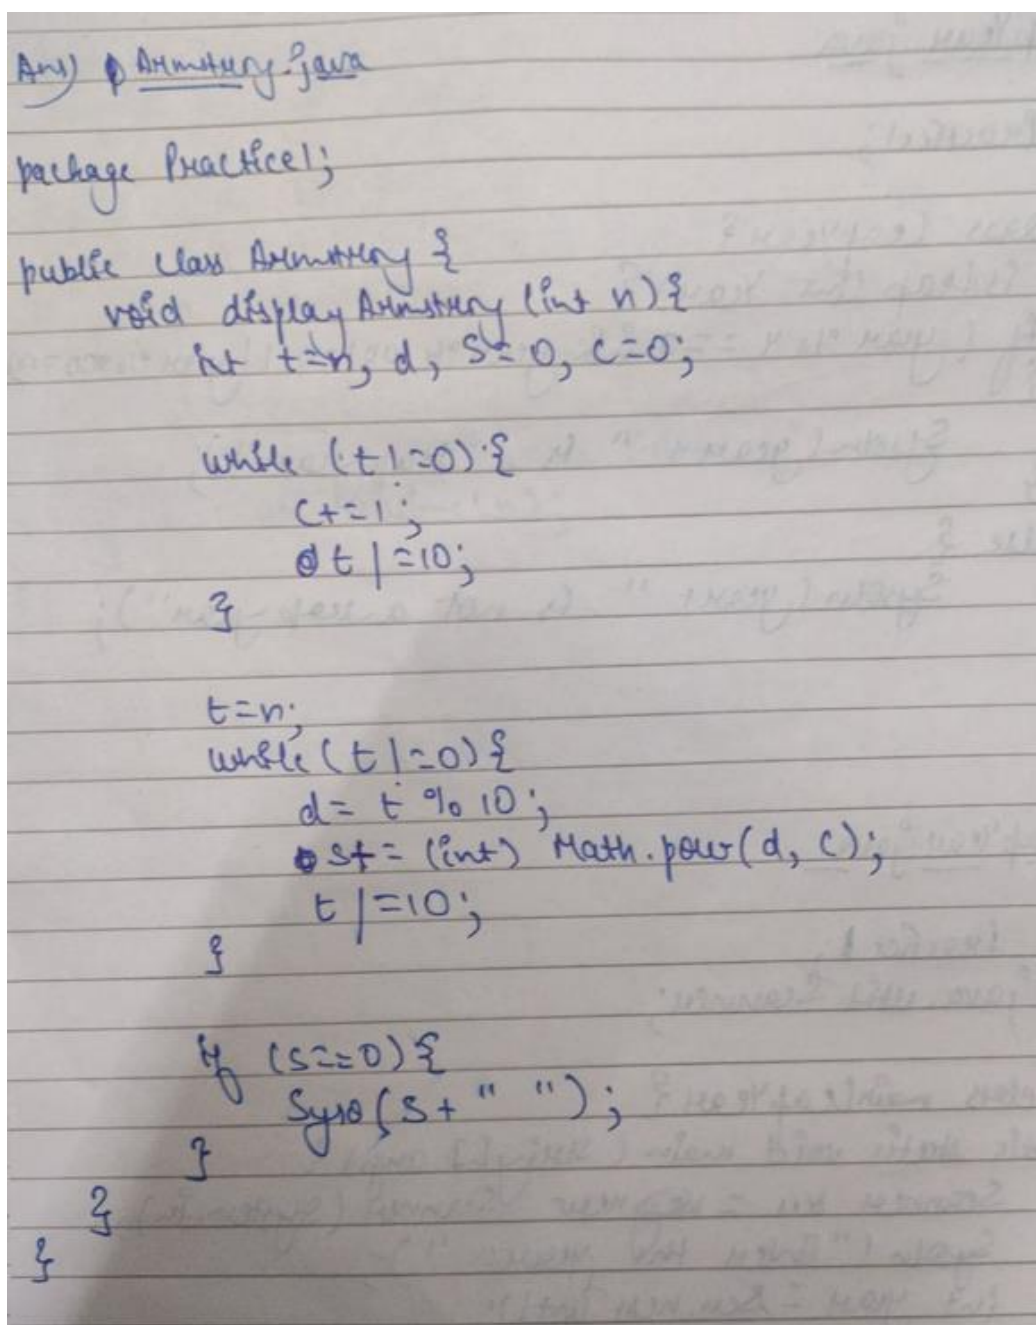 Ans) Armstrong.java
package Practice1;
public class Armstrong {
void displayArmstrong (int n) {
int t=n, d, s=0, c=0;
while (t!=0) {
c+=1;
t /=10;
}
t=n;
while (t!=0) {
d= t % 10;
s+= (int) Math.pow(d, c);
t /=10;
}
if (s==0) {
Syso(s+ " ");
}
}
}